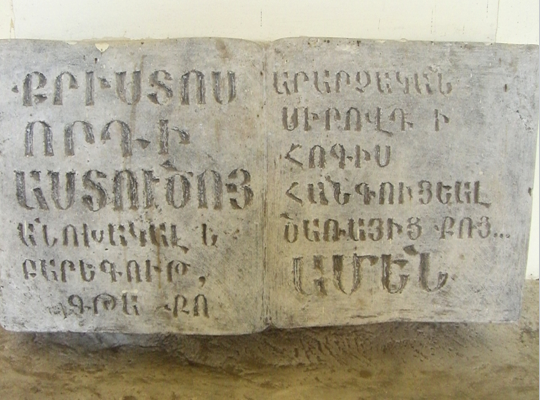 ՔՐԻՍՏՈՍ
ՈՐԴԻ
ԱՍՏՈՒԾՈՅ
ԱՆՈԽԱԿԱԼ Եւ
ԲԱՐԵԳՈՒԹ,
ԳԹԱ ՔՈ
ԱՐԱՐՉԱԿԱՆ
ՍԻՐՈՎԴ Ի
ՀՈԳԻՍ
ՀԱՆԳՈՒՑԵԱԼ
ԾԱՌԱՅԻՑ ՔՈՑ...
ԱՄԵՆ